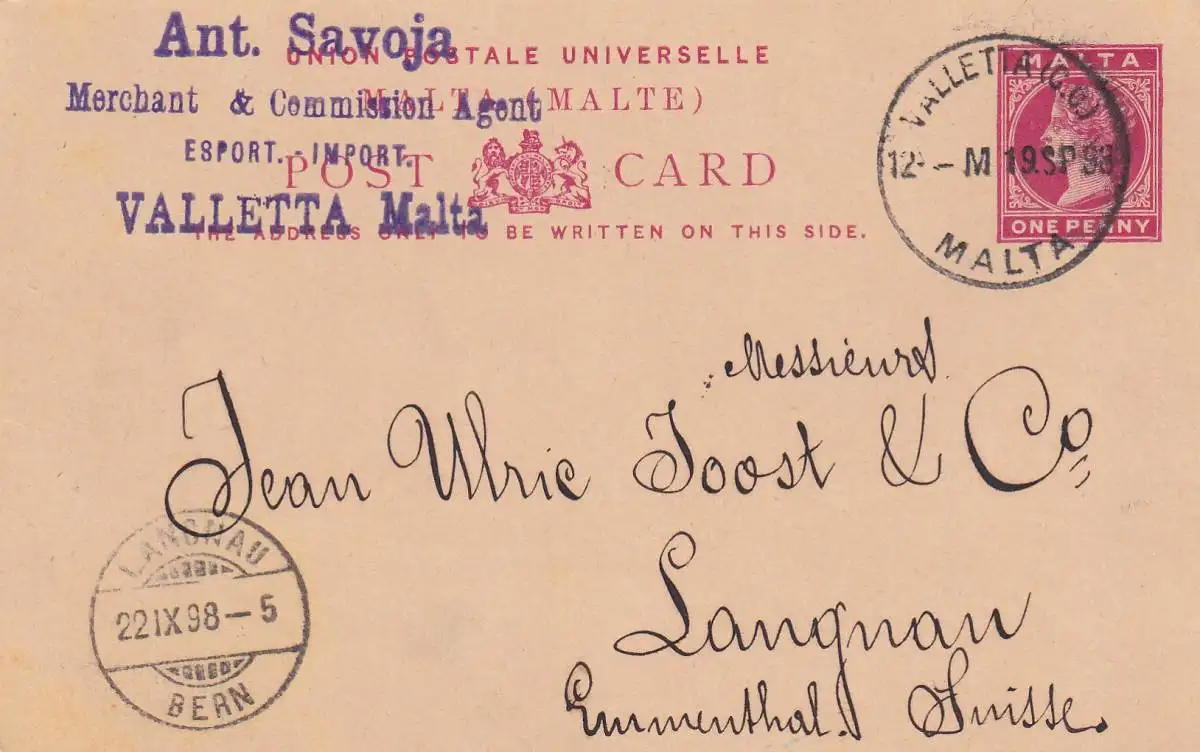 Ant. Savoja
UNION POSTALE UNIVERSELLE
Merchant & Commission Agent
MALTA (MALTE)
ESPORT. - IMPORT.
POST CARD
VALLETTA Malta
THE ADDRESS ONLY TO BE WRITTEN ON THIS SIDE.
MALTA
ONE PENNY
VALLETTA (G.O.)
19.SP.98
MALTA
Messieurs
Jean Ulric Joost & Co
Langnau
Emmenthal. Suisse.
LANGNAU
22 IX 98 – 5
BERN